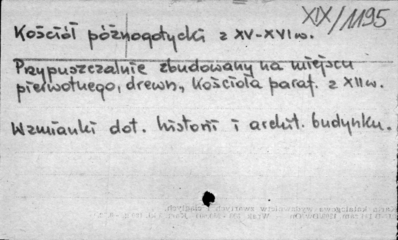 XIX/1195
Kościół późnogotycki z XV-XVI w.
Przypuszczalnie zbudowany na miejscu
pierwotnego, drewn, Kościoła paraf. z XII w.
Wzmianki dot. historii i archit. budynku.